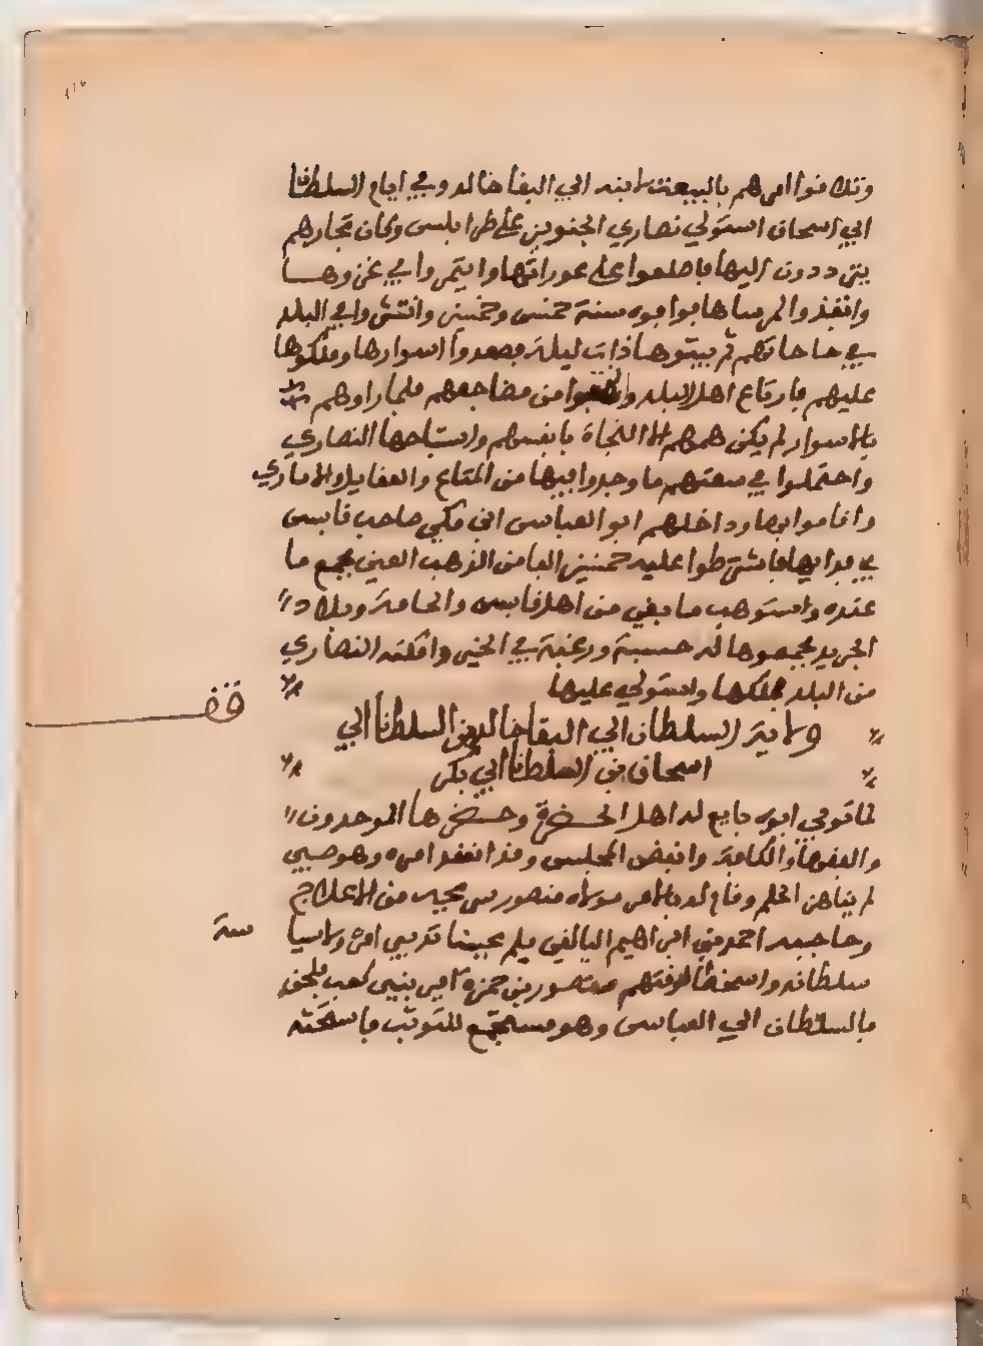 وتلافوا امرهم بالبيعة لابنه ابي البقا خالد وفي ايام السلطان
ابي اسحاق استولي نصاري الجنوين على طرابلس وكان تجارهم
يترددون اليها فاطلعوا على عوراتها وايتمروا في غزوها
واتعدوا لمرساها فوافوه سنة خمس وخمسين وانتشروا في البلد
في حاجاتهم ثم بيتوها ذات ليلة فصعدوا اسوارها وملكوها
عليهم فارتاع اهل البلد من مضاجعهم فلما راوهم
بالاسوار لم يكن همهم الا النجاة بانفسهم واستباحها النصاري
واحتملوا في سفنهم ما وجدوا بها من المتاع والعقايل والاساري
واقاموا بها وداخلهم ابو العباس ابن مكي صاحب قابس
في فدايها فاشترطوا عليه خمسين الفا من الذهب العين فجمع ما
عنده واستوهب ما بقي من اهل قابس والحامة وبلاد
الجريد فجمعوها له حسبة ورغبة في الخير وامكنه النصاري
من البلد فملكها واستولي عليها
ولاية السلطان ابي البقا خالد بن السلطان ابي
اسحاق بن السلطان ابي بكر
لما توفي ابوه بايع له اهل الحضرة وحضرها الموحدون
والفقها والكافة وانفض المجلس وقد انعقد امره وهو صبي
لم يناهز الحلم وقام له بالامر مولاه منصور من الاعلاج
وحاجبه احمد بن ابراهيم اليالقي فلم يحسنا تدبير امره ولا سياسة
سلطانه واسخطا لوقتهم منصور بن حمزة امير بني كعب فلحق
بالسلطان ابي العباس وهو مستجمع للتوثب فاستحثه